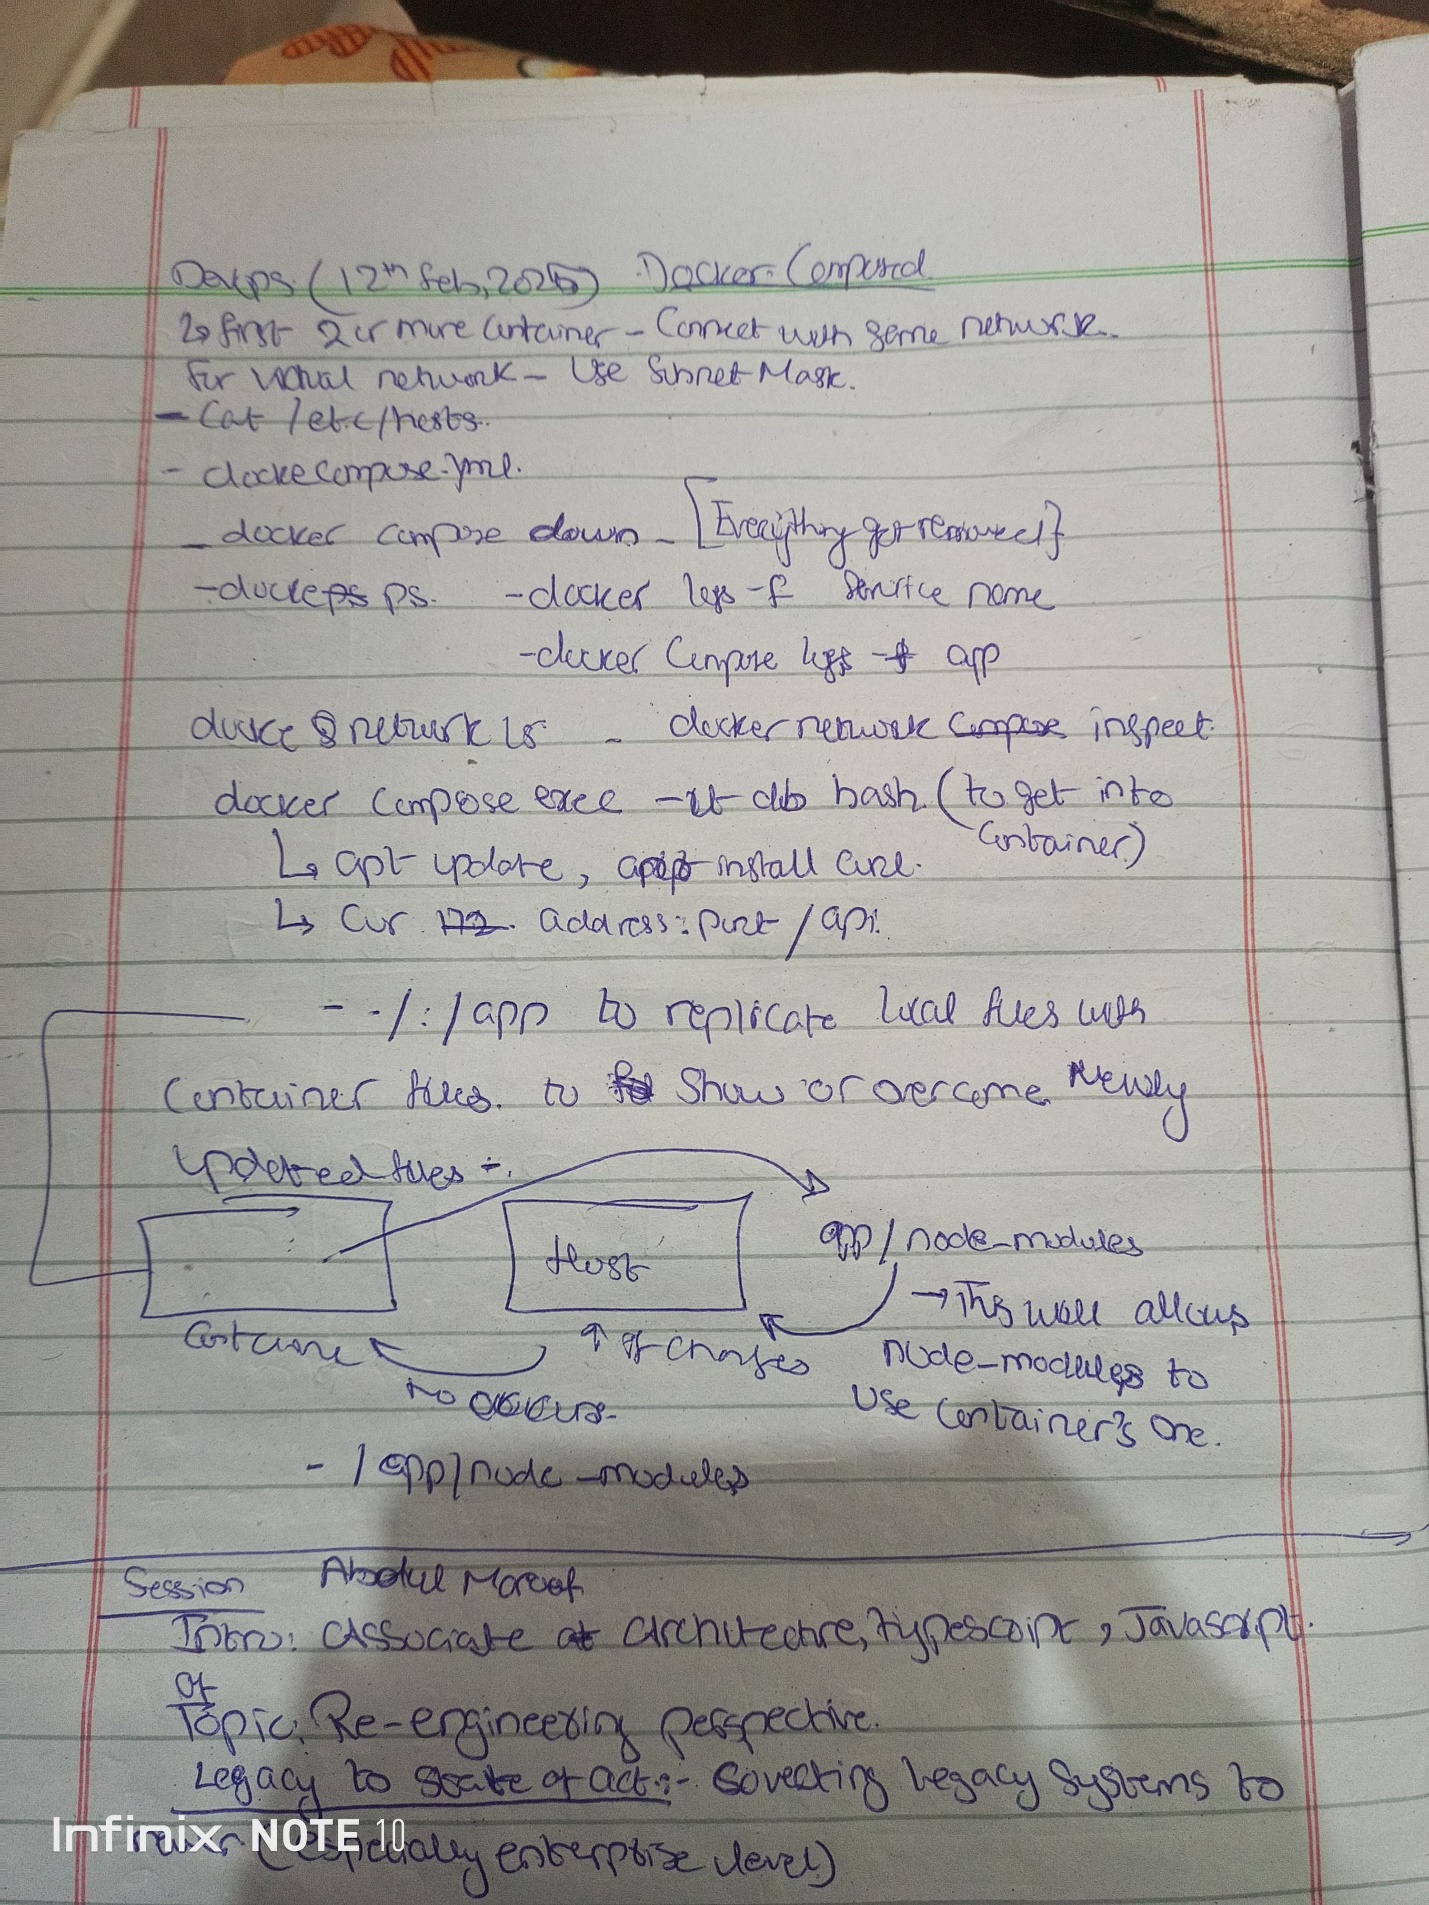 Devops (12th Feb, 2025) Docker-Composed
↳ first 2 or more container - Connect with same network.
for virtual network - Use Subnet Mask.
- Cat /etc/hosts.
- dockecompose.yml.
- docker compose down - [Everything got removed}
- docke ps. - docker logs -f Service name
- docker Compose logs -f app
docke network ls - docker network compose inspect
docker compose exec -it db bash (to get into
container)
↳ apt update, apt install curl.
↳ Cur 172. address:port/api.
- ./:/app to replicate local files with
Container files. to show or overcome Newly
updated files -.
Host
app/node-modules
→ This will allows
Container
↑ If changes
node-modules to
no occurs.
Use container's one.
- /app/node-modules
Session Abdul Maroof
Intro: Associate at Architecture, typescript, Javascript.
of
Topic: Re-engineering perspective.
Legacy to state of act:- Coverting Legacy Systems to
newer (especially enterprise level)
Infinix NOTE 10